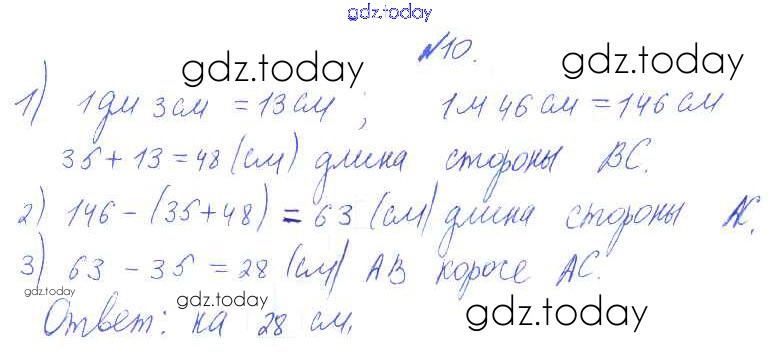 gdz.today
№10.
gdz.today gdz.today
1) 1дм 3см = 13см; 1м 46см = 146см
35 + 13 = 48 (см) длина стороны ВС.
2) 146 - (35 + 48) = 63 (см) длина стороны АС.
3) 63 - 35 = 28 (см) АВ короче АС.
gdz.today gdz.today gdz.today
Ответ: на 28 см.